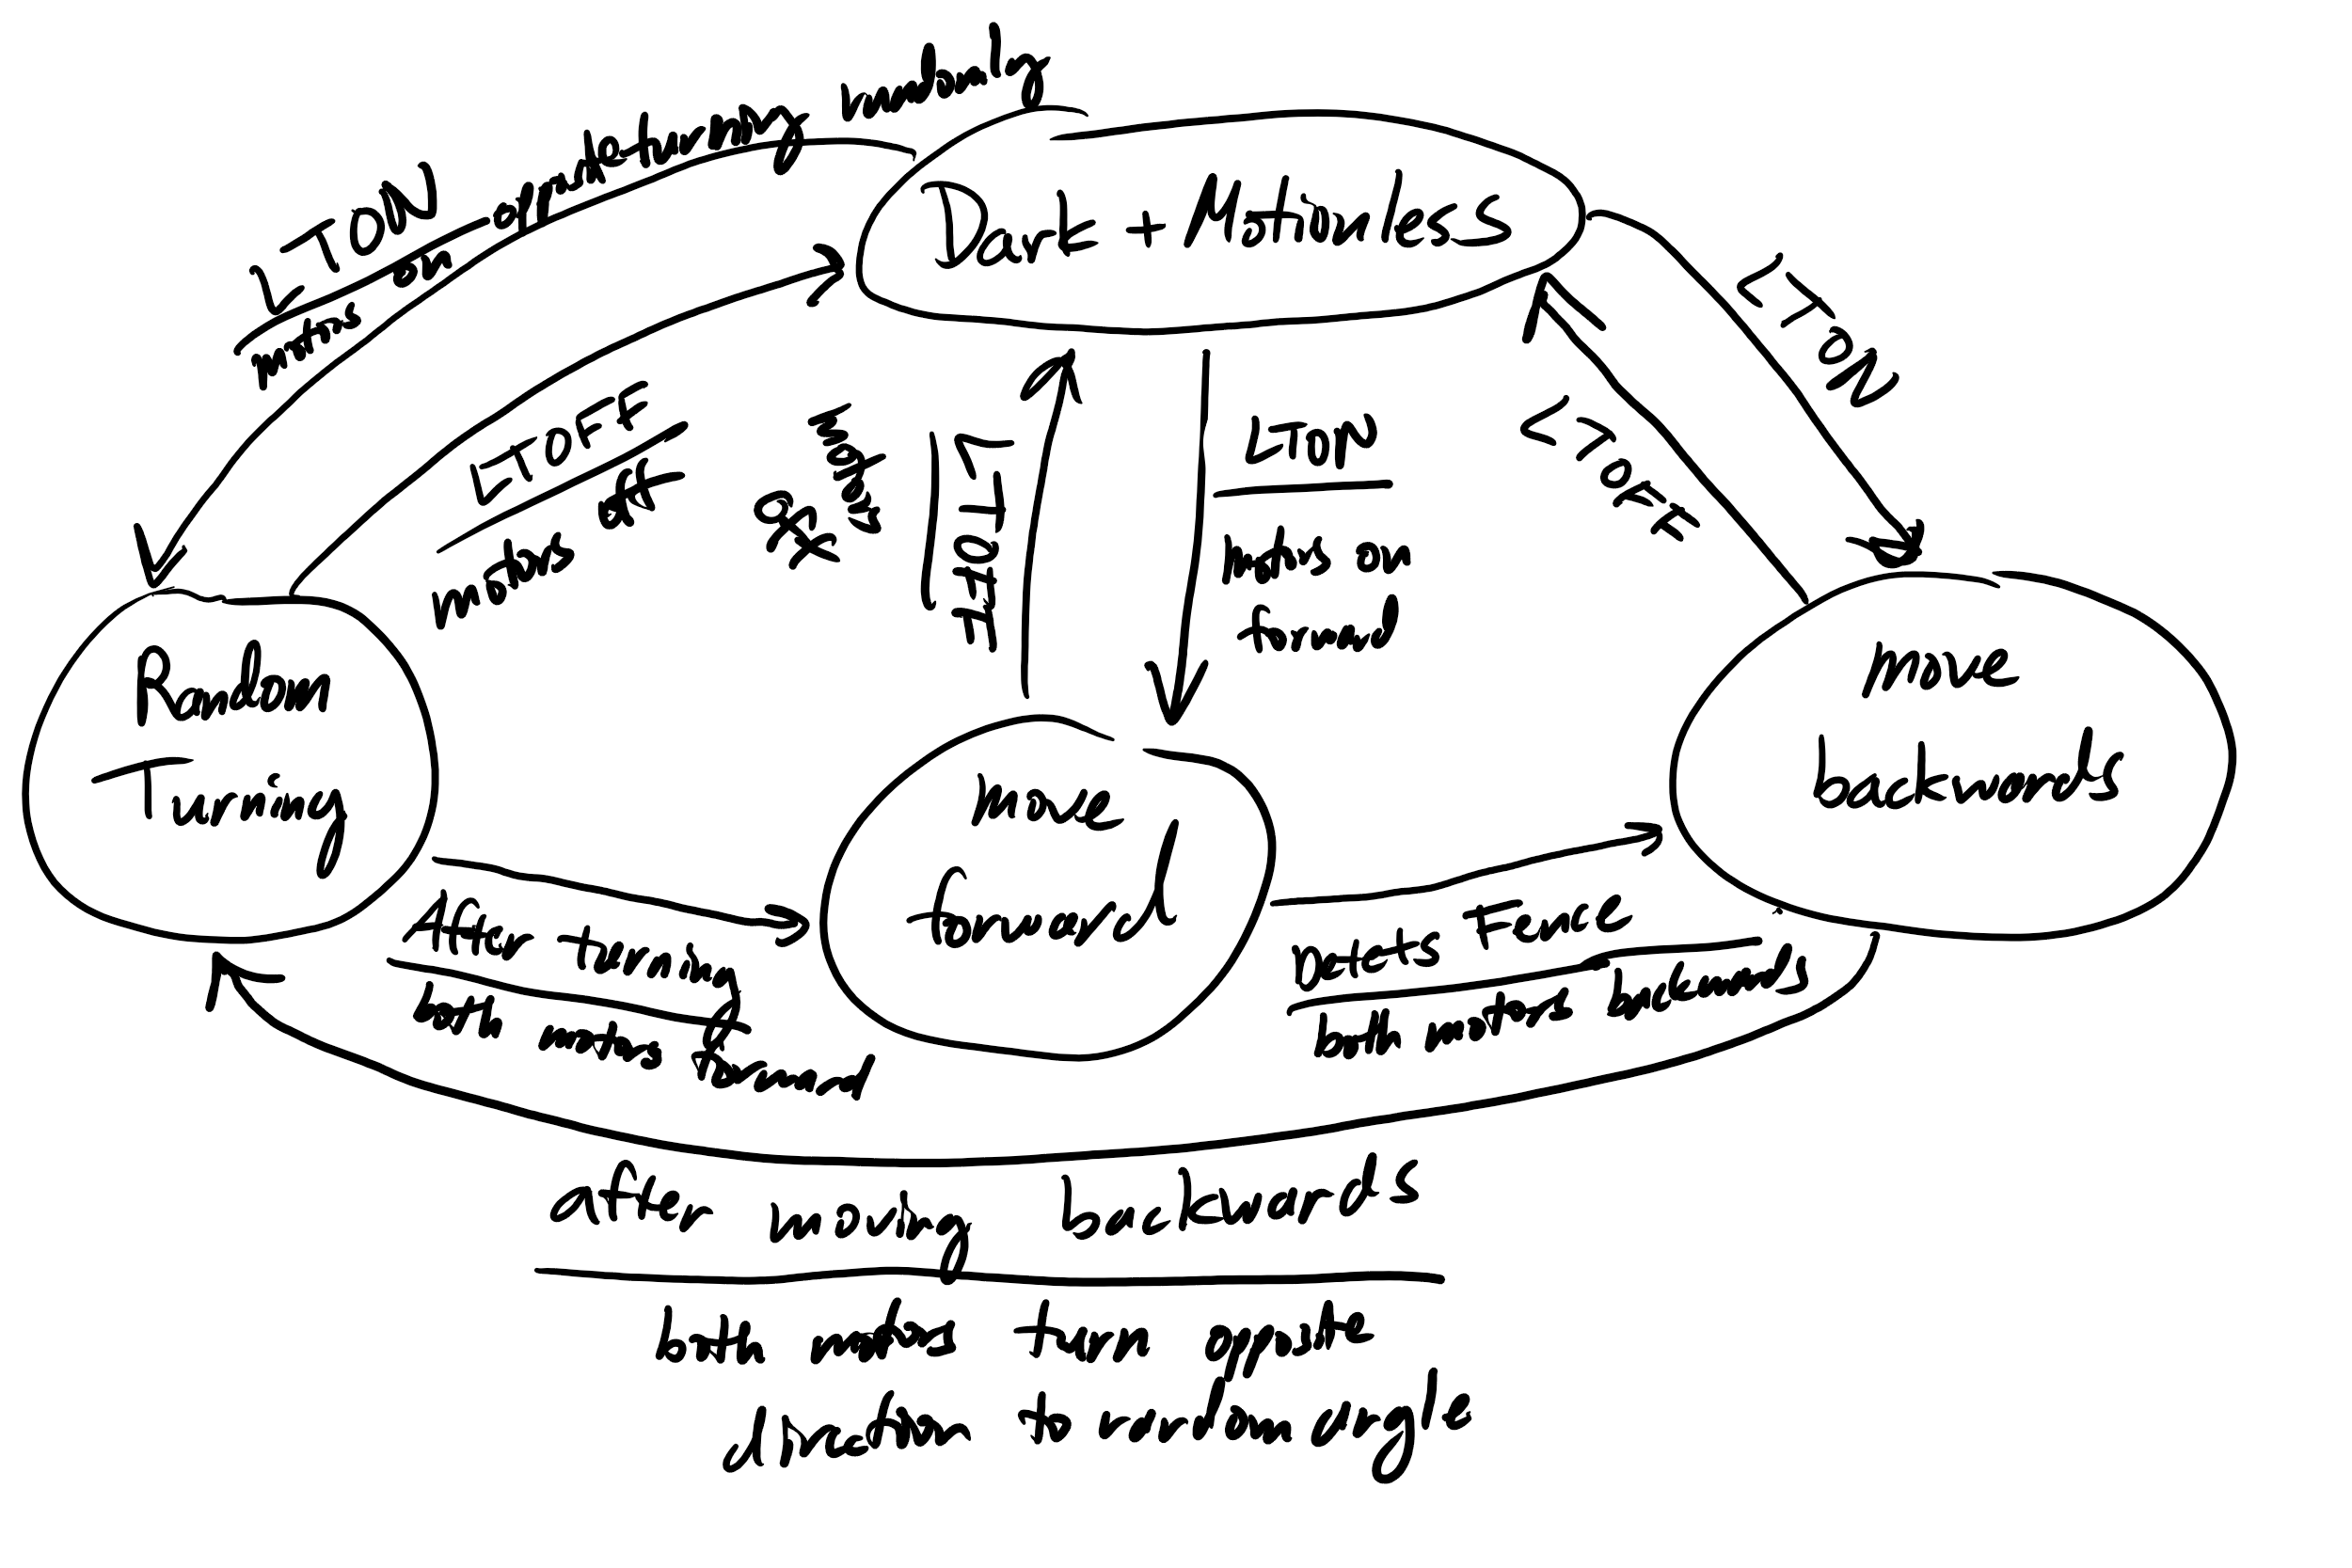 randomly
LTON and not turning
motors on
Dark + Motionless
LTON
LTOFF
motors off
LTOFF
motors
off
LTON
motors on
forward
LTOFF
Random
Turning
move
forward
move
backwards
After turning
both motors forward
Detects Fence
both motors backwards
after moving backwards
both motors turn opposite
direction to random angle